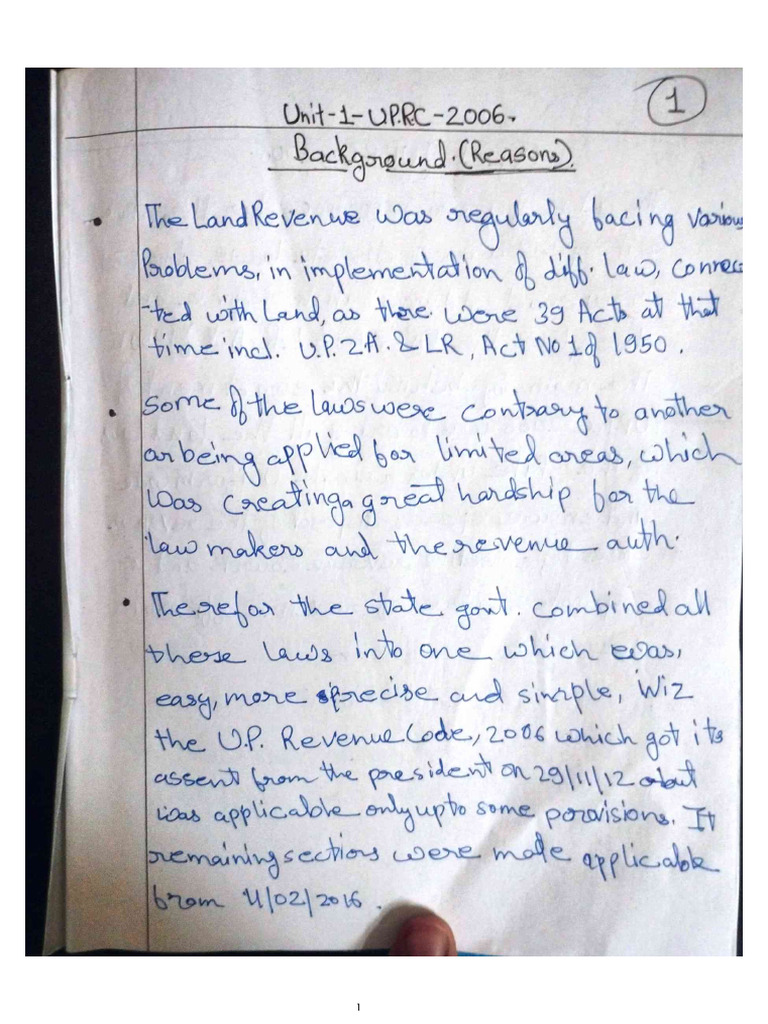 1
Unit-1-U.P.R.C-2006.
Background.(Reasons).
• The Land Revenue was regularly facing various
Problems, in implementation of diff. law, connec
-ted with Land, as there were 39 Acts at that
time incl. U.P.Z.A. & LR, Act No 1 of 1950.
• Some of the laws were contrary to another
or being applied for limited areas, which
was creating a great hardship for the
law makers and the revenue auth.
• Therefor the state govt. combined all
these laws into one which was,
easy, more precise and simple, Wiz
the U.P. Revenue Code, 2006 which got its
assent from the president on 29/11/12 but
was applicable only upto some porovisions. It
remaining sections were made applicable
from 11/02/2016.
1